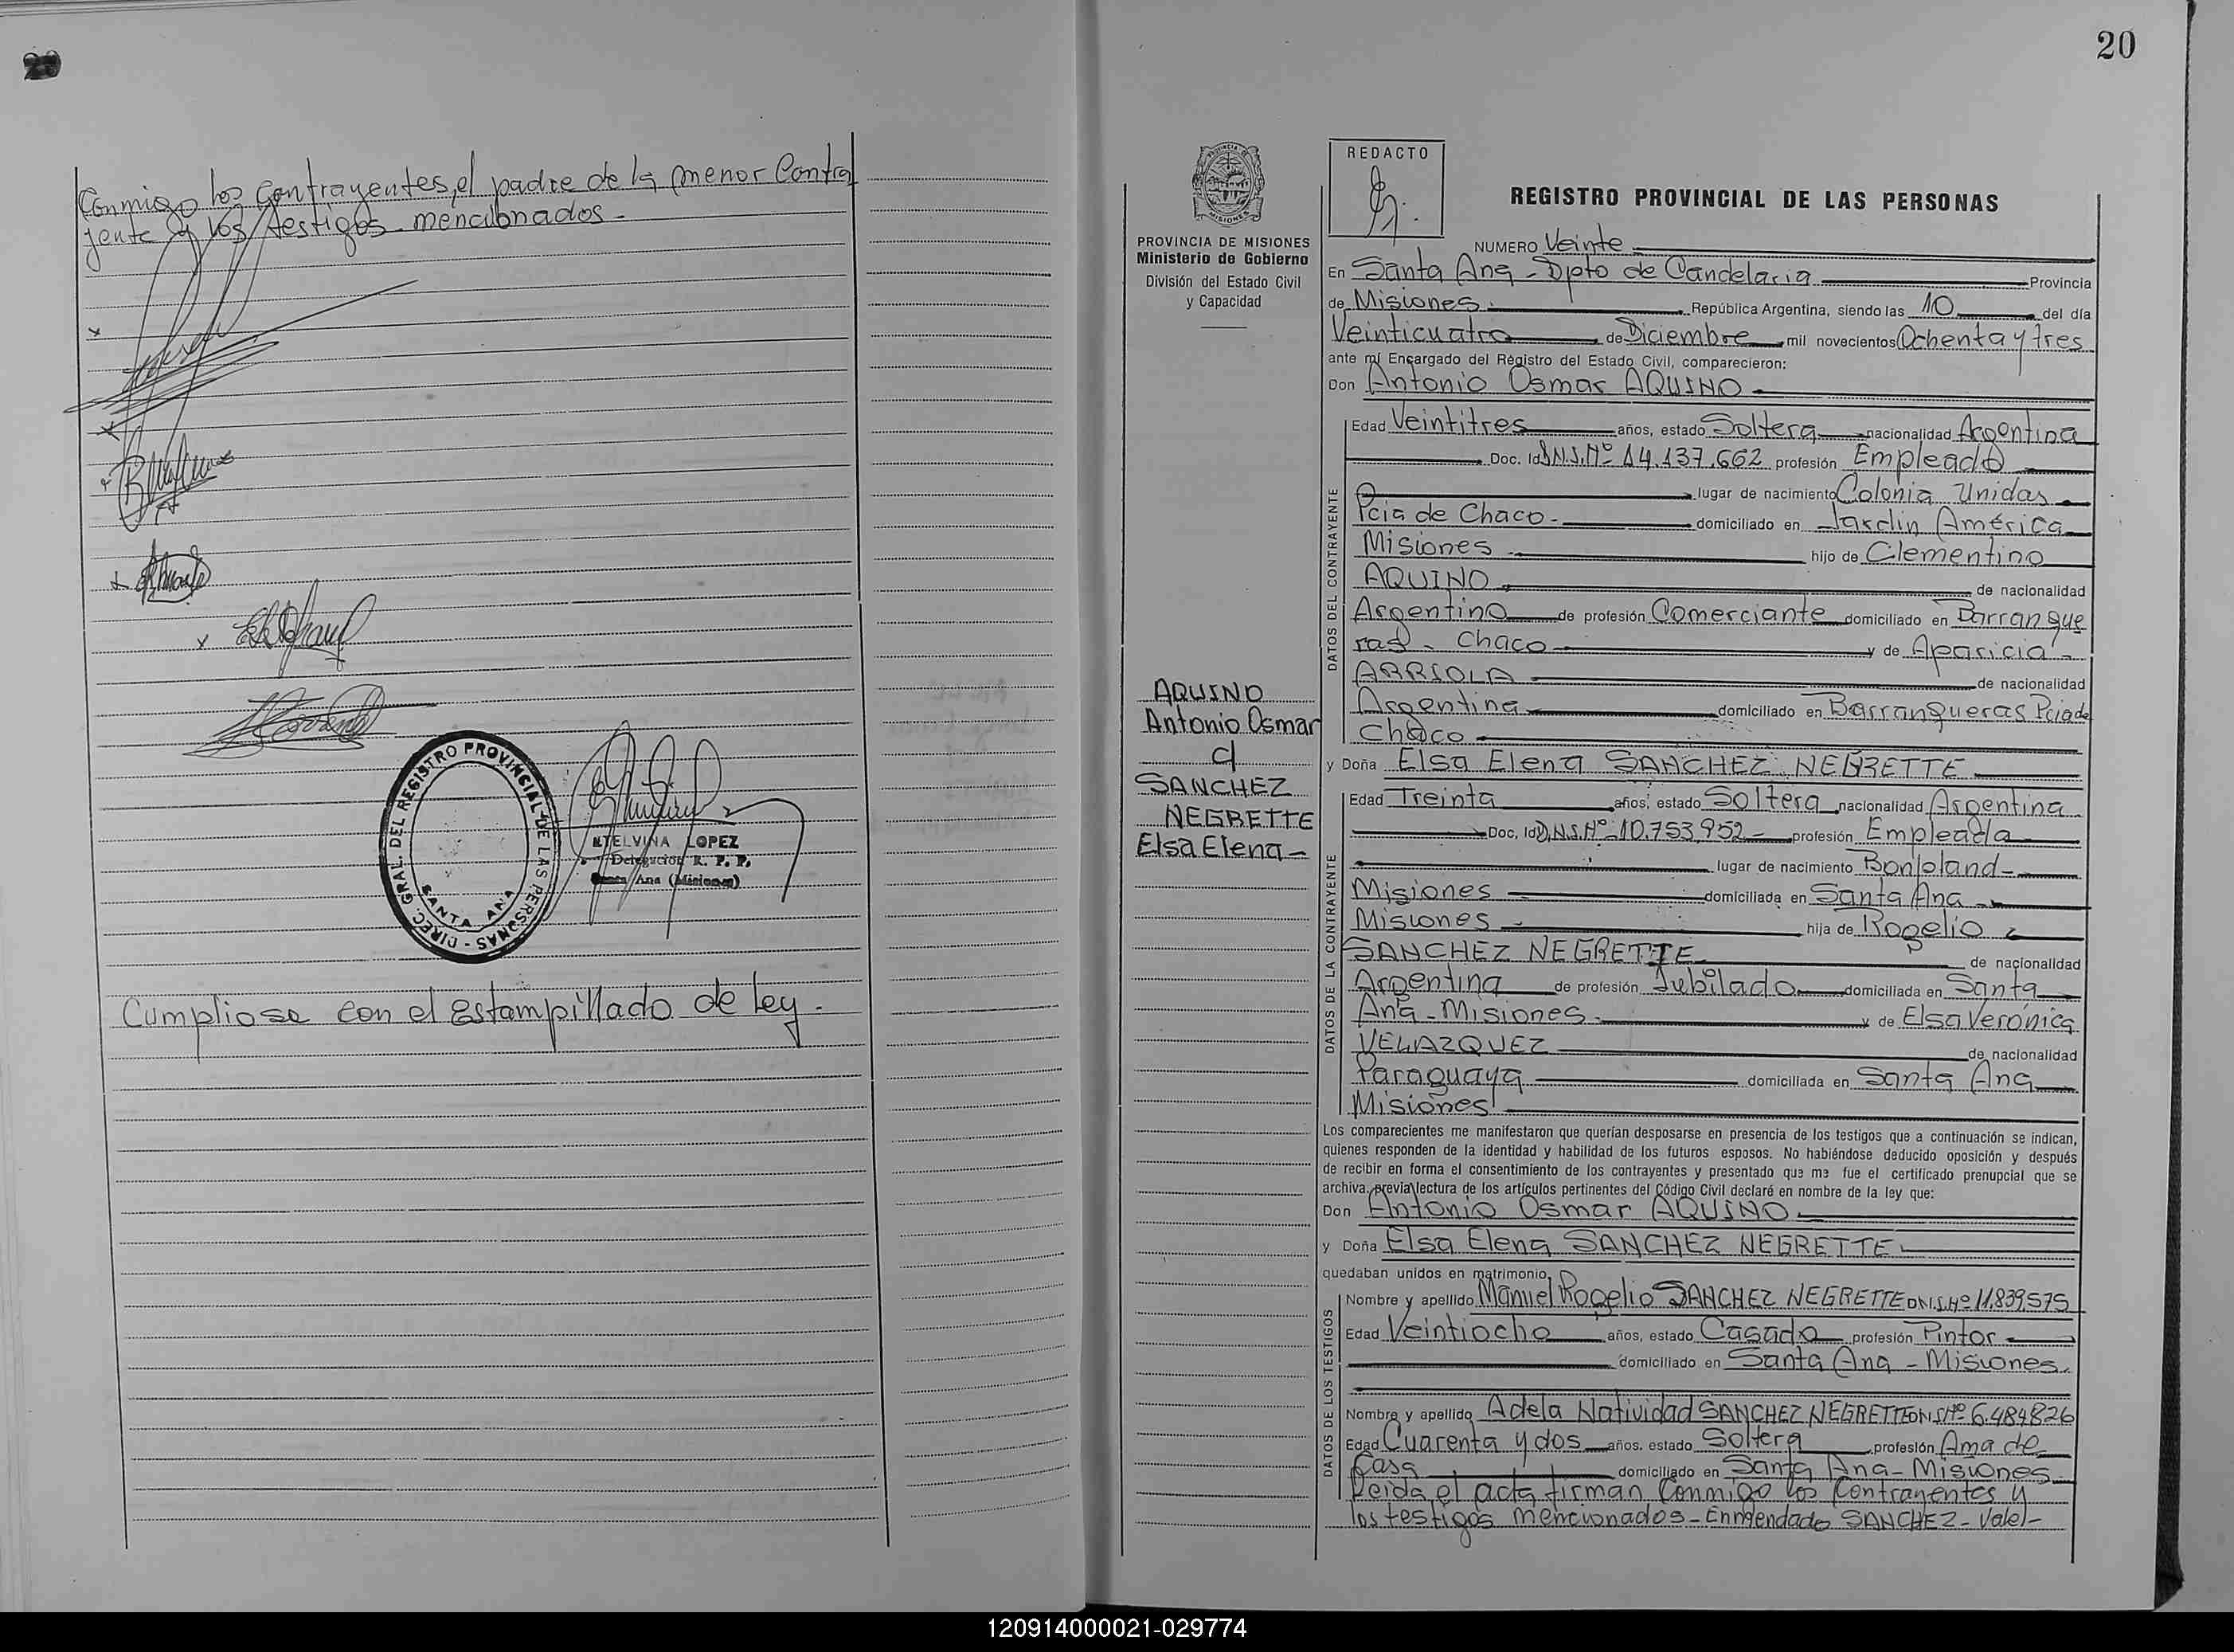 Conmigo los contrayentes, el padre de la menor Contra
yente y los testigos mencionados -
DIREC. GRAL. DEL REGISTRO PROVINCIAL DE LAS PERSONAS -
SANTA ANA
ETELVINA LOPEZ
Delegación R. P. P.
Santa Ana (Misiones)
Cumpliose con el estampillado de Ley.
20
PROVINCIA DE MISIONES
Ministerio de Gobierno
División del Estado Civil
y Capacidad
AQUINO
Antonio Osmar
c/
SANCHEZ
NEGRETTE
Elsa Elena -
REDACTO
REGISTRO PROVINCIAL DE LAS PERSONAS
NUMERO Veinte
En Santa Ana - Dpto de Candelaria Provincia
de Misiones. República Argentina, siendo las 10 del día
Veinticuatro de Diciembre mil novecientos Ochenta y tres
ante mí Encargado del Registro del Estado Civil, comparecieron:
Don Antonio Osmar AQUINO
Edad Veintitres años, estado Soltera nacionalidad Argentina
Doc. Id D.N.I. Nº 14.137.662 profesión Empleado
lugar de nacimiento Colonia Unidas
Pcia de Chaco - domiciliado en Jardin América
Misiones hijo de Clementino
AQUINO de nacionalidad
Argentino de profesión Comerciante domiciliado en Barranque
ras - Chaco y de Aparicia -
ARRIOLA de nacionalidad
Argentina domiciliado en Barranqueras Pcia de
Chaco
y Doña Elsa Elena SANCHEZ NEGRETTE
Edad Treinta años, estado Soltera nacionalidad Argentina
Doc. Id D.N.I. Nº 10.753.952 - profesión Empleada
lugar de nacimiento Bonpland -
Misiones domiciliada en Santa Ana -
Misiones - hija de Rogelio
SANCHEZ NEGRETTE de nacionalidad
Argentina de profesión Jubilado domiciliada en Santa
Ana - Misiones. y de Elsa Verónica
VELAZQUEZ de nacionalidad
Paraguaya domiciliada en Santa Ana
Misiones
Los comparecientes me manifestaron que querían desposarse en presencia de los testigos que a continuación se indican,
quienes responden de la identidad y habilidad de los futuros esposos. No habiéndose deducido oposición y después
de recibir en forma el consentimiento de los contrayentes y presentado que me fue el certificado prenupcial que se
archiva, previa lectura de los artículos pertinentes del Código Civil declaré en nombre de la ley que:
Don Antonio Osmar AQUINO
y Doña Elsa Elena SANCHEZ NEGRETTE
quedaban unidos en matrimonio.
Nombre y apellido Manuel Rogelio SANCHEZ NEGRETTE D.N.I. Nº 11.839.575
Edad Veintiocho años, estado Casado profesión Pintor
domiciliado en Santa Ana - Misiones.
Nombre y apellido Adela Natividad SANCHEZ NEGRETTE DNI Nº 6.484826
Edad Cuarenta y dos años, estado Soltera profesión Ama de
Casa domiciliado en Santa Ana - Misiones
Leida el acta firman Conmigo los Contrayentes y
los testigos mencionados - Enmendado SANCHEZ - Vale -
DATOS DEL CONTRAYENTE
DATOS DE LA CONTRAYENTE
DATOS DE LOS TESTIGOS
120914000021-029774